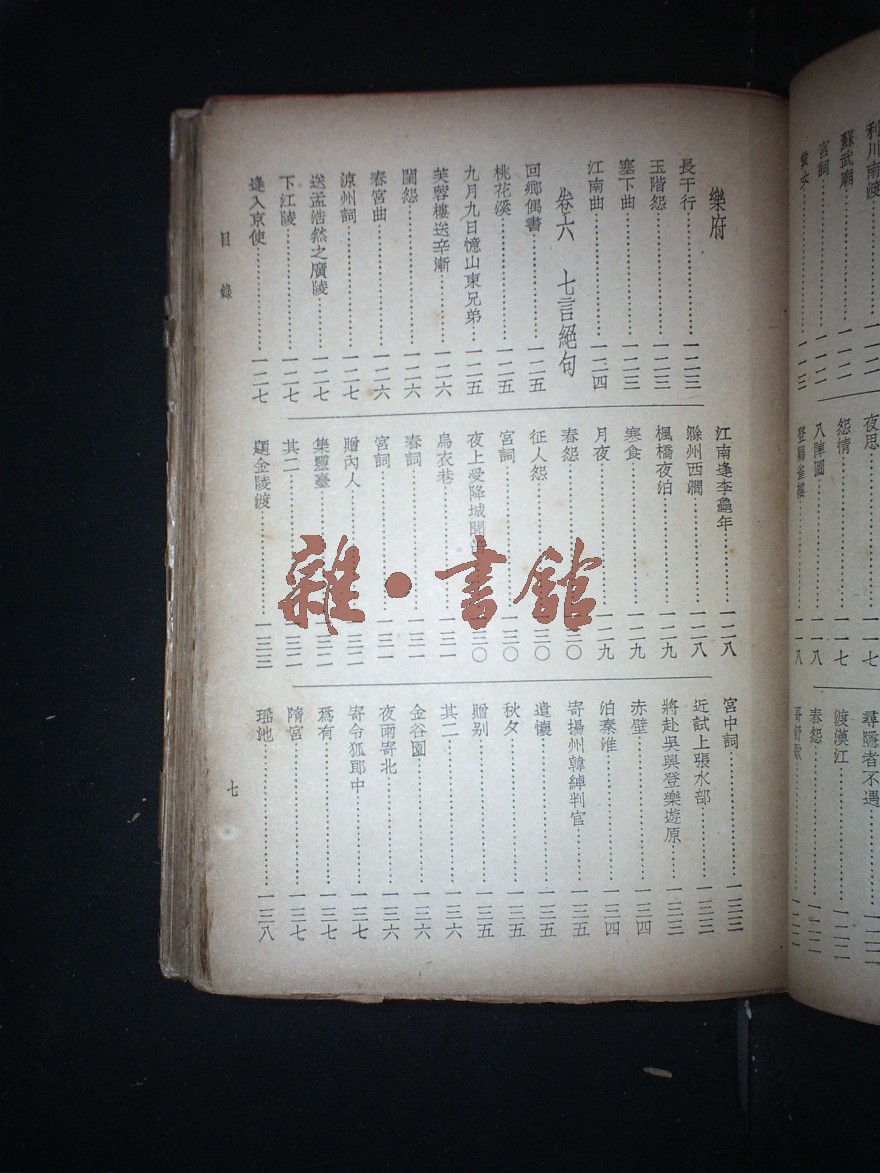 利川南渡……一一二
蘇武廟……一一二
宮詞……一一二
一一三
夜思……一一七
怨情……一一七
八陣圖……一一八
登鸛雀樓……一一八
尋隱者不遇
渡漢江
春怨
哥舒歌
樂府
長干行……一二三
玉階怨……一二三
塞下曲……一二三
江南曲……一二四
卷六 七言絕句
回鄉偶書……一二五
桃花溪……一二五
九月九日憶山東兄弟……一二五
芙蓉樓送辛漸……一二六
閨怨……一二六
春宮曲……一二六
涼州詞……一二七
送孟浩然之廣陵……一二七
下江陵……一二七
逢入京使……一二七
江南逢李龜年……一二八
滁州西澗……一二八
楓橋夜泊……一二九
寒食……一二九
月夜……一二九
春怨……三〇
征人怨……三〇
宮詞……一三〇
夜上受降城聞……三〇
烏衣巷……一三一
春詞……一三一
宮詞……一三一
贈內人……一三二
集靈臺……一三二
其二……一三二
題金陵渡……一三三
宮中詞……一三三
近試上張水部……一三三
將赴吳興登樂遊原……一三三
赤壁……一三四
泊秦淮……一三四
寄揚州韓綽判官……一三五
遣懷……一三五
秋夕……一三五
贈別……一三五
其二……一三六
金谷園……一三六
夜雨寄北……一三六
寄令狐郎中……一三七
爲有……一三七
隋宮……一三七
瑤池……一三八
目錄
七
雜·書館